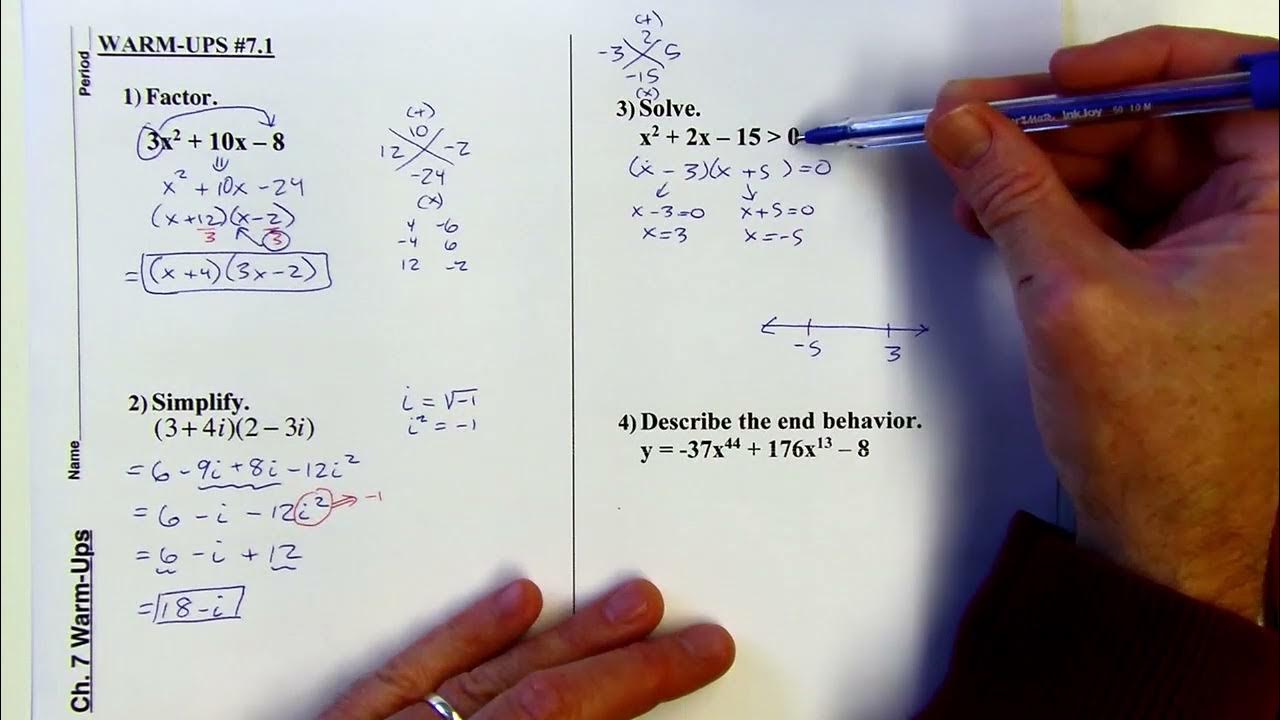 WARM-UPS #7.1
Period
Name
Ch. 7 Warm-Ups
1) Factor.
3x² + 10x – 8
x² + 10x - 24
(x+12)(x-2)
3 3
= (x+4)(3x-2)
(+)
10
12 -2
-24
(x)
4 -6
-4 6
12 -2
2) Simplify.
(3+4i)(2–3i)
= 6 - 9i + 8i - 12i²
= 6 - i - 12i² → -1
= 6 - i + 12
= 18-i
i = √-1
i² = -1
(+)
2
-3 5
-15
(x)
3) Solve.
x² + 2x – 15 > 0
(x - 3)(x + 5) = 0
x-3=0 x+5=0
x=3 x=-5
-5 3
4) Describe the end behavior.
y = -37x⁴⁴ + 176x¹³ – 8
InkJoy 50 1.0 M